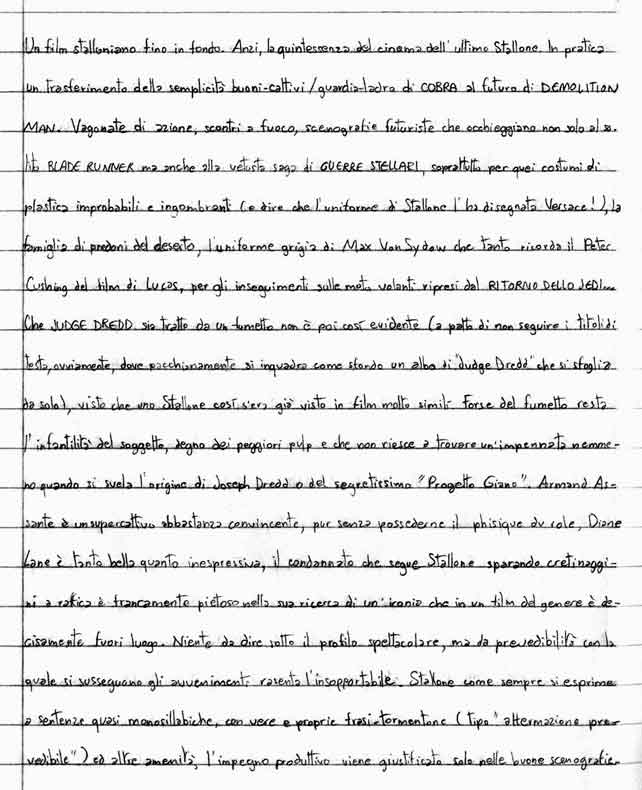 Un film stalloniano fino in fondo. Anzi, la quintessenza del cinema dell'ultimo Stallone. In pratica
un trasferimento della semplicità buoni-cattivi/guardia-ladra di COBRA al futuro di DEMOLITION
MAN. Vagonate di azione, scontri a fuoco, scenografie futuriste che occhieggiano non solo al so-
lito BLADE RUNNER ma anche alla vetusta saga di GUERRE STELLARI, soprattutto per quei costumi di
plastica improbabili e ingombranti (e dire che l'uniforme di Stallone l'ha disegnata Versace!), la
famiglia di predoni del deserto, l'uniforme grigia di Max Von Sydow che tanto ricorda il Peter
Cushing del film di Lucas, per gli inseguimenti sulle moto volanti ripresi dal RITORNO DELLO JEDI...
Che JUDGE DREDD sia tratto da un fumetto non è poi così evidente (a patto di non seguire i titoli di
testa, ovviamente, dove pacchianamente si inquadra come sfondo un albo di "Judge Dredd" che si sfoglia
da solo), visto che uno Stallone così s'era già visto in film molto simili. Forse del fumetto resta
l'infantilità del soggetto, degno dei peggiori pulp e che non riesce a trovare un'impennata nemme-
no quando si svela l'origine di Joseph Dredd o del segretissimo "Progetto Giano". Armand As-
sante è un supercattivo abbastanza convincente, pur senza possederne il phisique du role, Diane
Lane è tanto bella quanto inespressiva, il condannato che segue Stallone sparando cretinaggi-
ni a rafica è francamente pietoso nella sua ricerca di un'ironia che in un film del genere è de-
cisamente fuori luogo. Niente da dire sotto il profilo spettacolare, ma da prevedibilità con la
quale si susseguono gli avvenimenti rasenta l'insopportabile. Stallone come sempre si esprime
a sentenze quasi monosillabiche, con vere e proprie frasi-tormentone (tipo "affermazione pre-
vedibile") ed altre amenità, l'impegno produttivo viene giustificato solo nelle buone scenografie.